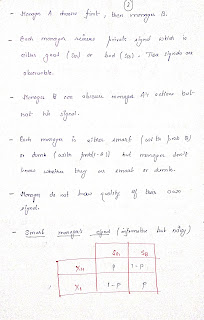 (2)
- Manager A chooses first, then manager B.
- Each manager receives private signal which is
either good (SG) or bad (SB). The signals are
observable.
- Manager B can observe manager A's actions but
not his signal.
- Each manager is either smart (with prob θ)
or dumb (with prob 1-θ) but managers don't
know whether they are smart or dumb.
- Manager do not know quality of their own
signal.
- Smart manager's signal (informative but noisy)
SG SB
XH P 1-P
XL 1-P P